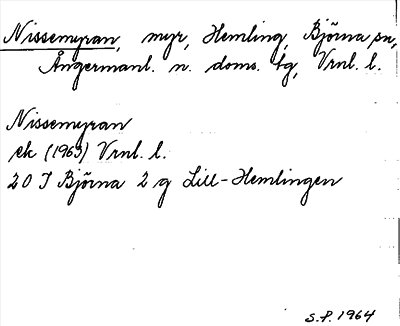 Nissemyran, myr, Hemling, Björna sn,
Ångermanl. n. doms. tg, Vrnl. l.
Nissemyran
ek (1963) Vrnl. l.
20 I Björna 2 g Lill-Hemlingen
S.P. 1964